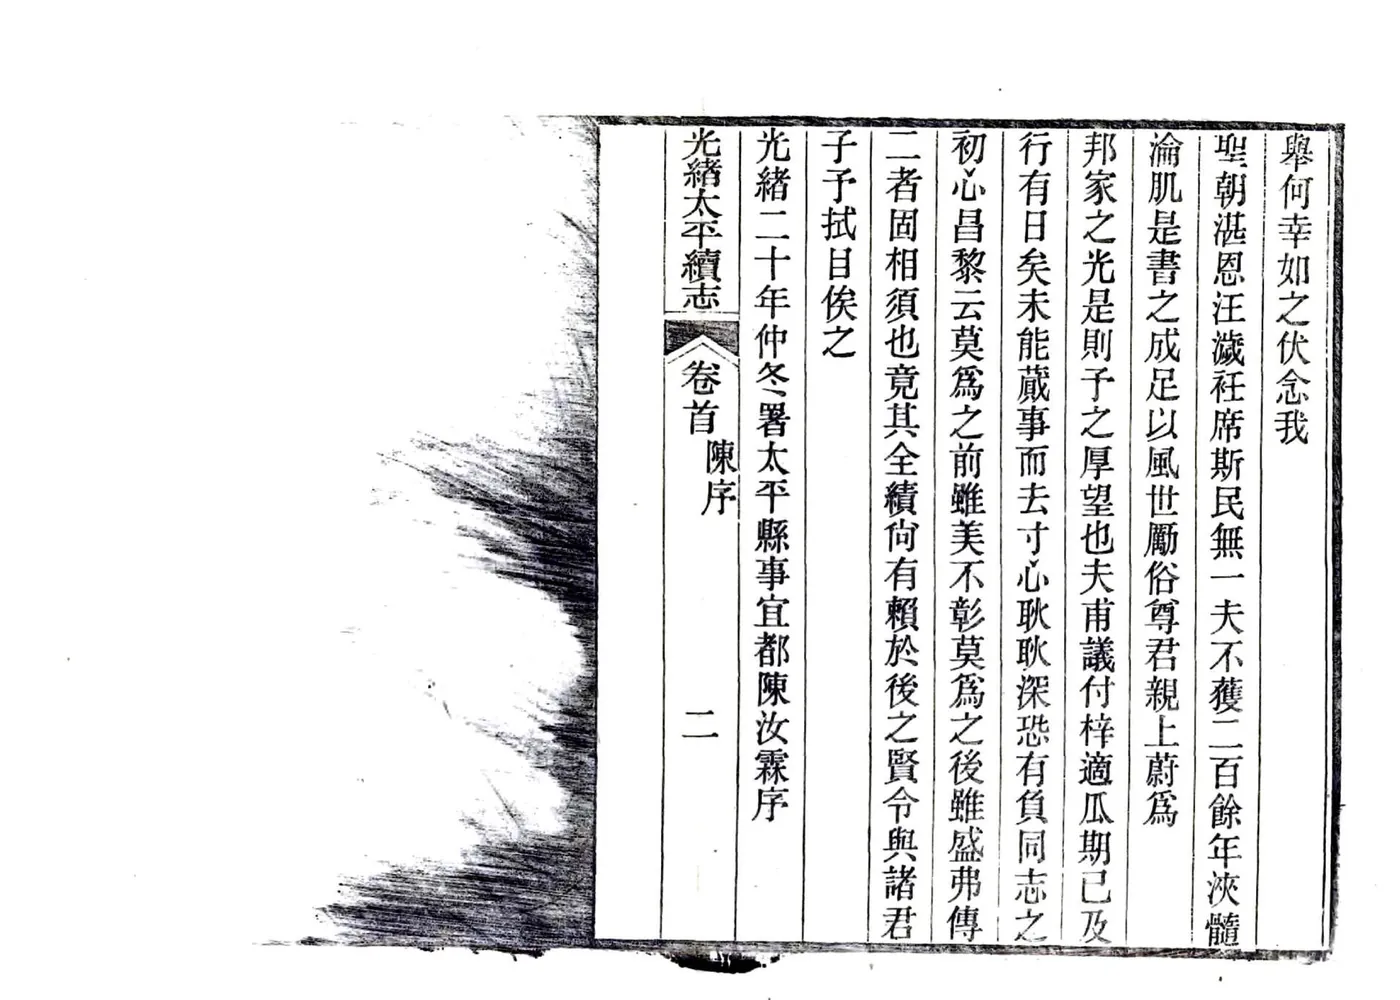 舉何幸如之伏念我
聖朝湛恩汪濊衽席斯民無一夫不獲二百餘年浹髓
淪肌是書之成足以風世勵俗尊君親上蔚爲
邦家之光是則予之厚望也夫甫議付梓適瓜期已及
行有日矣未能蕆事而去寸心耿耿深恐有負同志之
初心昌黎云莫爲之前雖美不彰莫爲之後雖盛弗傳
二者固相須也竟其全績尙有賴於後之賢令與諸君
子予拭目俟之
光緒二十年仲冬署太平縣事宜都陳汝霖序
光緒太平續志
卷首
陳序
二